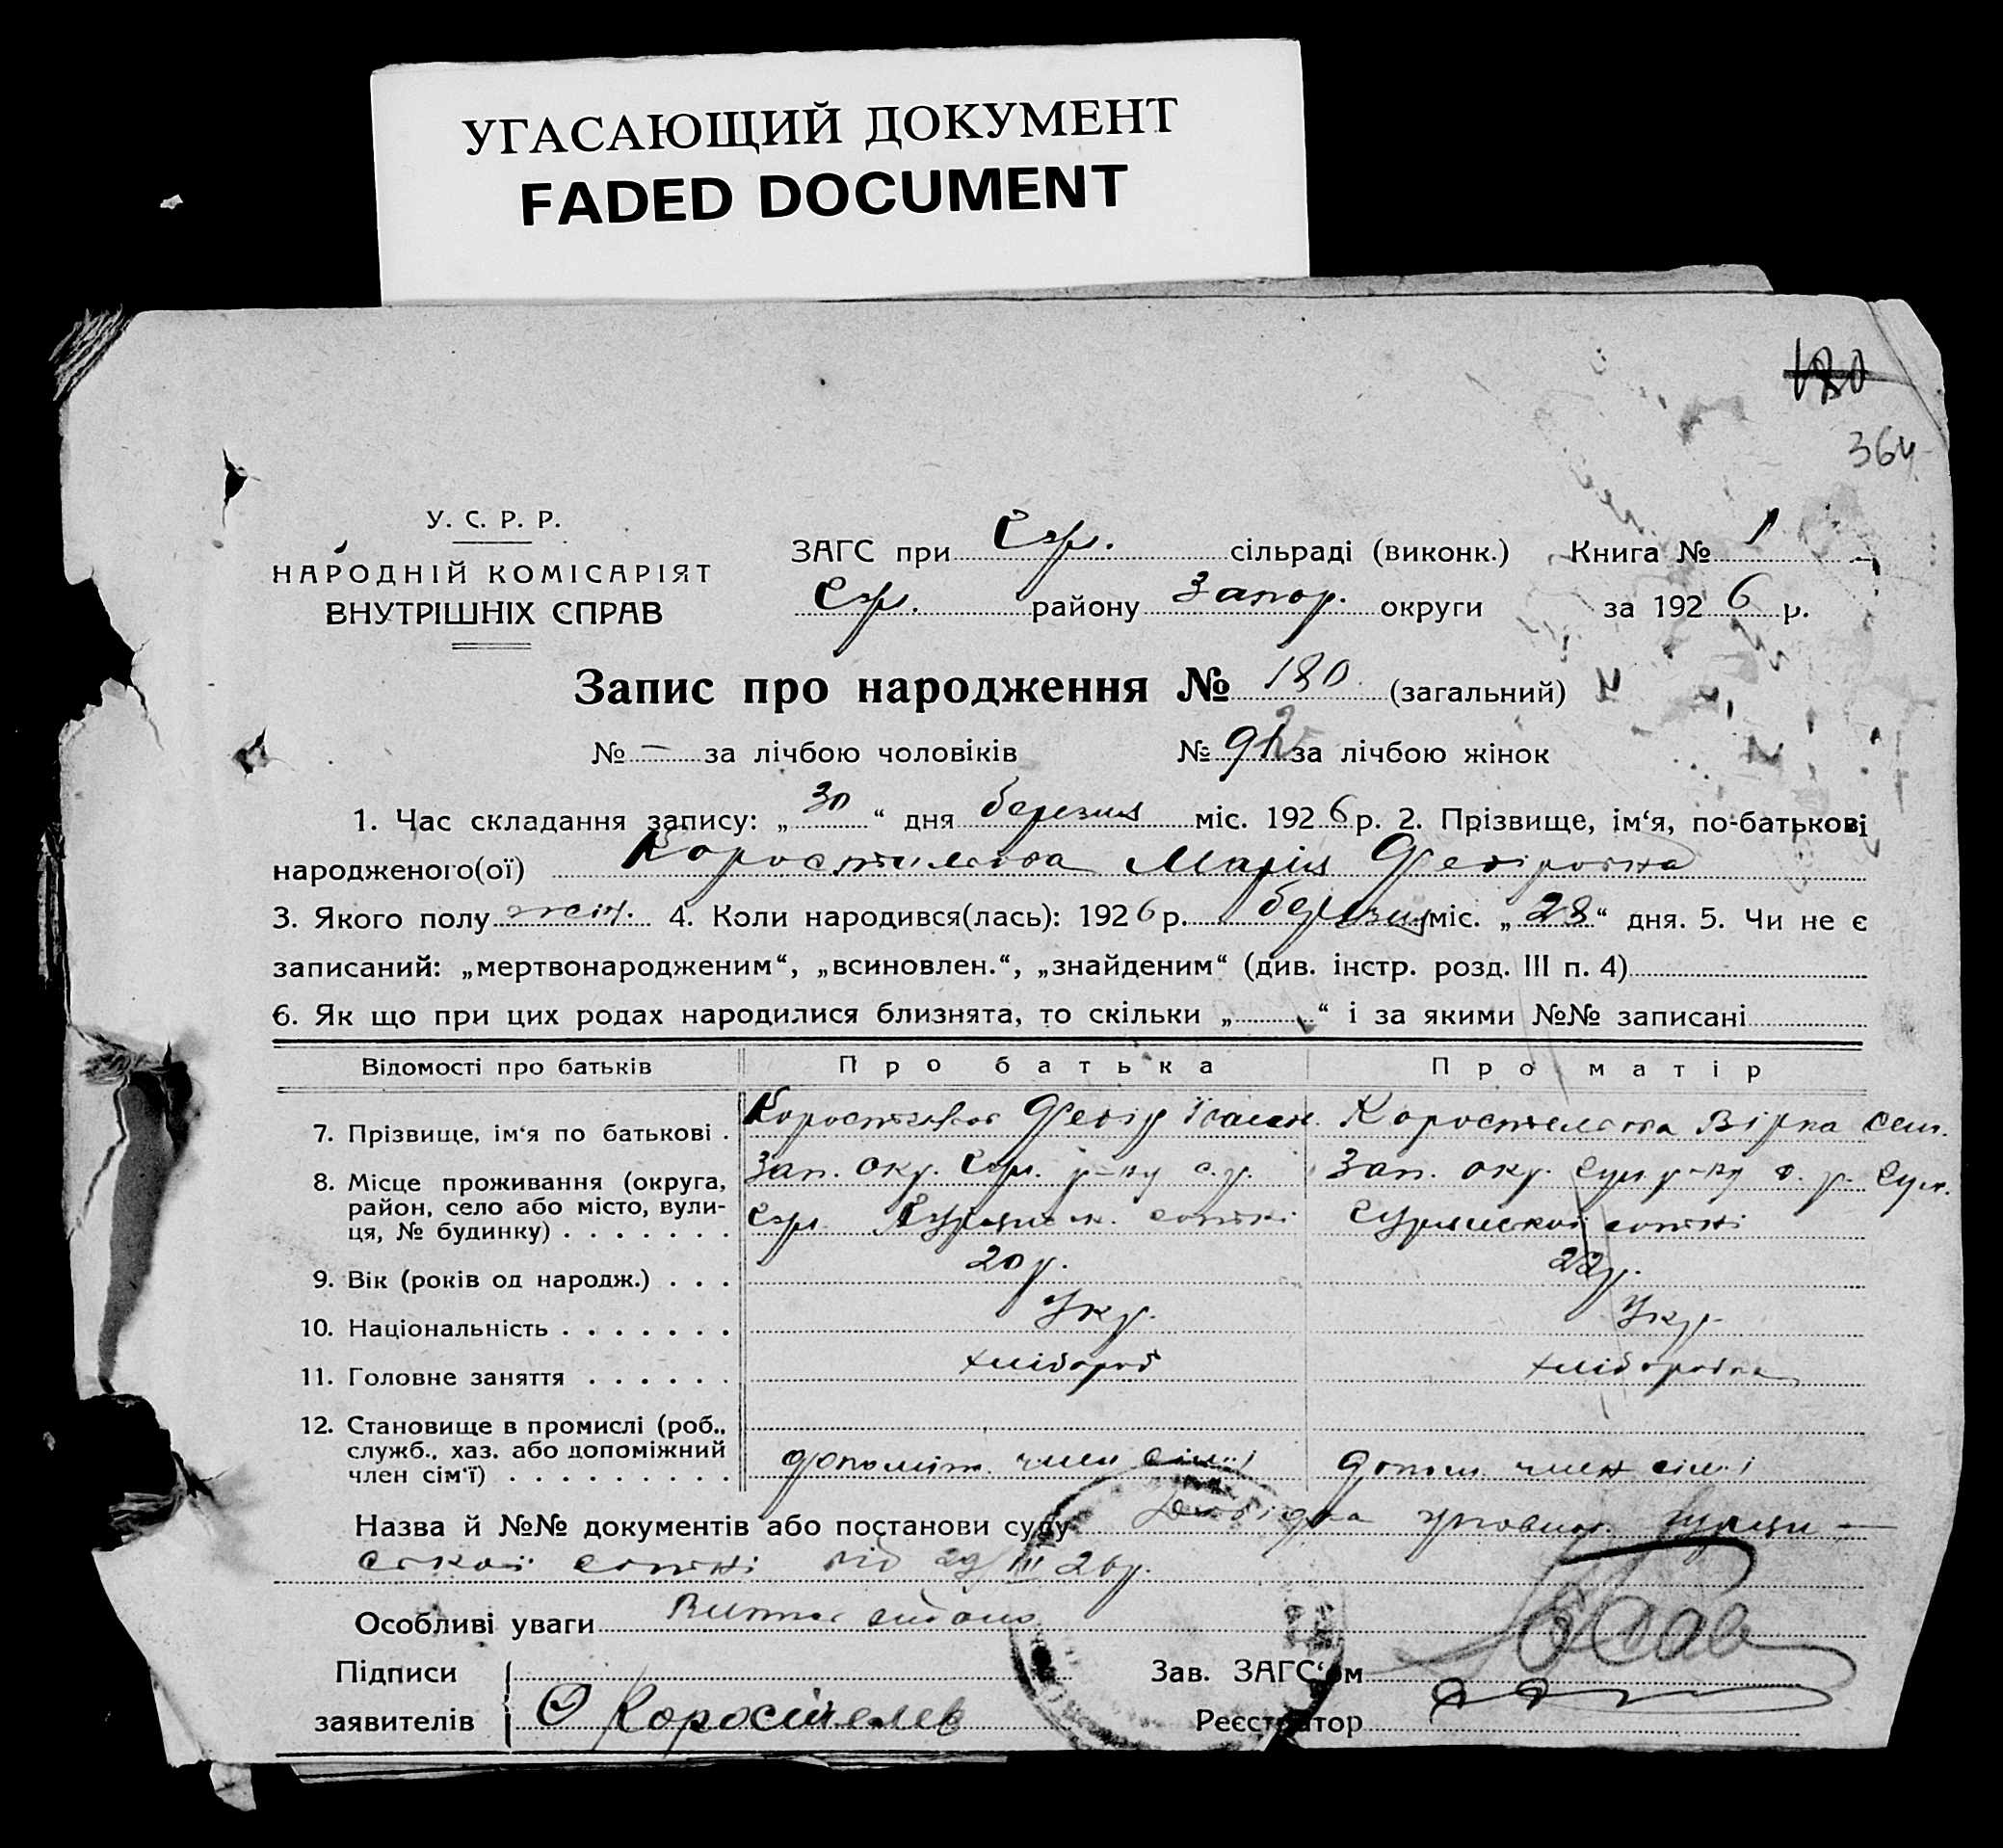 УГАСАЮЩИЙ ДОКУМЕНТ
FADED DOCUMENT
180
364
У. С. Р. Р.
НАРОДНІЙ КОМІСАРІЯТ
ВНУТРІШНІХ СПРАВ
ЗАГС при сільраді (виконк.) Книга № 1
району Запор. округи за 1926 р.
Запис про народження № 180 (загальний)
№ — за лічбою чоловіків № 92 за лічбою жінок
1. Час складання запису: „30“ дня березня міс. 1926 р. 2. Прізвище, ім‘я, по-батькові
народженого(ої) Коростильова Марія Федіровна
3. Якого полу жін. 4. Коли народився(лась): 1926 р. березня міс. „28“ дня. 5. Чи не є
записаний: „мертвонародженим“, „всиновлен.“, „знайденим“ (див. інстр. розд. III п. 4)
6. Як що при цих родах народилися близнята, то скільки „ “ і за якими №№ записані
Відомості про батьків Про батька Про матір
7. Прізвище, ім‘я по батькові . Федір Іван. Коростельова Вірка Сем.
8. Місце проживання (округа, Зап. окр. р-ну с. Зап. окр. р-ну с.
район, село або місто, вули- сотні сотні
ця, № будинку) . . . . . . .
9. Вік (років од народж.) . . . 20 р. 22 р.
10. Національність . . . . . . . Укр. Укр.
11. Головне заняття . . . . . . хлібороб хліборобка
12. Становище в промислі (роб.,
служб., хаз. або допоміжний
член сім‘ї) . . . . . . . . . допоміж. член сім‘ї допом. член сім‘ї
Назва й №№ документів або постанови суду Довідка
ської сотні від 29/III 26 р.
Особливі уваги
Підписи Зав. ЗАГС‘ом
заявителів Коростелев Реєстратор